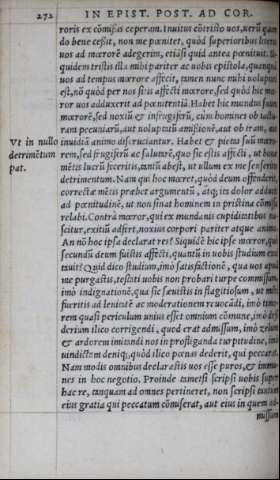 272 IN EPIST. POST. AD COR.
roris ex cõmissis ceperam. Inuitus cõtristo uos, uerũ quan
do bene cessit, non me pœnitet, quòd superioribus literis
uos ad mœrorẽ adegerim, etiã si quid antea pœnituit. Si
quidem tristis illa mihi pariter ac uobis epistola, quanquã
uos ad tempus mœrore affecit, tamen nunc mihi uoluptati
est, nõ quòd per nos sitis affecti mœrore, sed quòd hic mœ
ror uos adduxerit ad pœnitentiã. Habet hic mundus suum
mœrorẽ, sed noxiũ & infrugiferũ, cum homines ob iactu-
ram pecuniarũ, aut uoluptatũ amissionẽ, aut ob iram, aut
Vt in nullo inuidiã animo discruciantur. Habet & pietas suũ mœro
detrimẽtum rem, sed frugiferũ ac salutarẽ, quo sic estis affecti, ut bono
pat. mẽtis lucrũ feceritis, tantũ abest, ut ullum ex me senseritis
detrimentum. Nam qui hoc mœret, quòd deum offenderit,
correctæ mẽtis præbet argumentũ, atq; is dolor adducit
ad pœnitudinẽ, ut non sinat hominem in pristina cõmissa
relabi. Contrà mœror, qui ex mundanis cupiditatibus na
scitur, exitũ adfert, noxius corpori pariter atque animo.
An nõ hoc ipsa declarat res? Siquidẽ hic ipse mœror, quo
secundũ deum fuistis affecti, quantũ in uobis studium exci
tauit? Quid dico studium, imò satisfactionẽ, qua uos apud
me purgastis, testati uobis non probari turpe commissum,
imò indignationẽ, qua sic sæuistis in flagitiosum, ut mihi
fueritis ad lenitatẽ ac moderationem reuocãdi, imò timo-
rem quasi periculum unius esset omnium cõmune, imò desy
derium illico corrigendi, quod erat admissum, imò zelum
& ardorem imitandi nos in profliganda turpitudine, imò
uindictam deniq;, quòd ilico pœnas dederit, qui peccarat.
Nam modis omnibus declarastis uos esse puros, & immu-
nes in hoc negotio. Proinde tametsi scripsi uobis super
hac re, tanquam ad omnes pertineret, non scripsi tantum
eius gratia qui peccatum cõmiserat, aut eius in quem ad-
missum